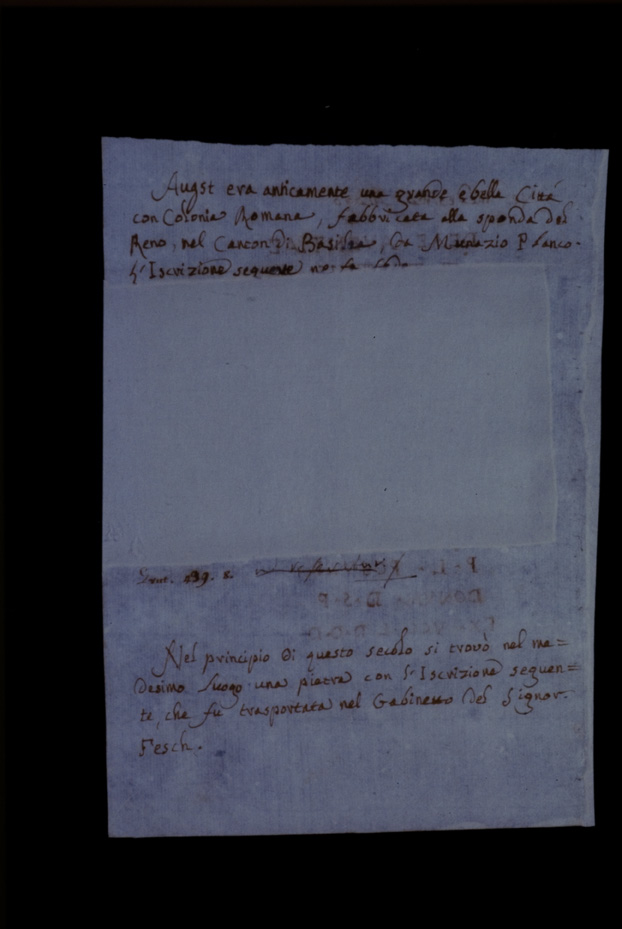 Augst era anticamente una grande e bella Città
con Colonia Romana, fabbricata alla sponda del
Reno, nel Canton di Basilea, da Munazio Planco.
L'Iscrizione sequente ne fa fede
Grut. 439. 8.
Nel principio di questo secolo si trovò nel me=
desimo luogo una pietra con l'Iscrizione seguen=
te, che fu trasportata nel Gabinetto del Signor
Fesch.